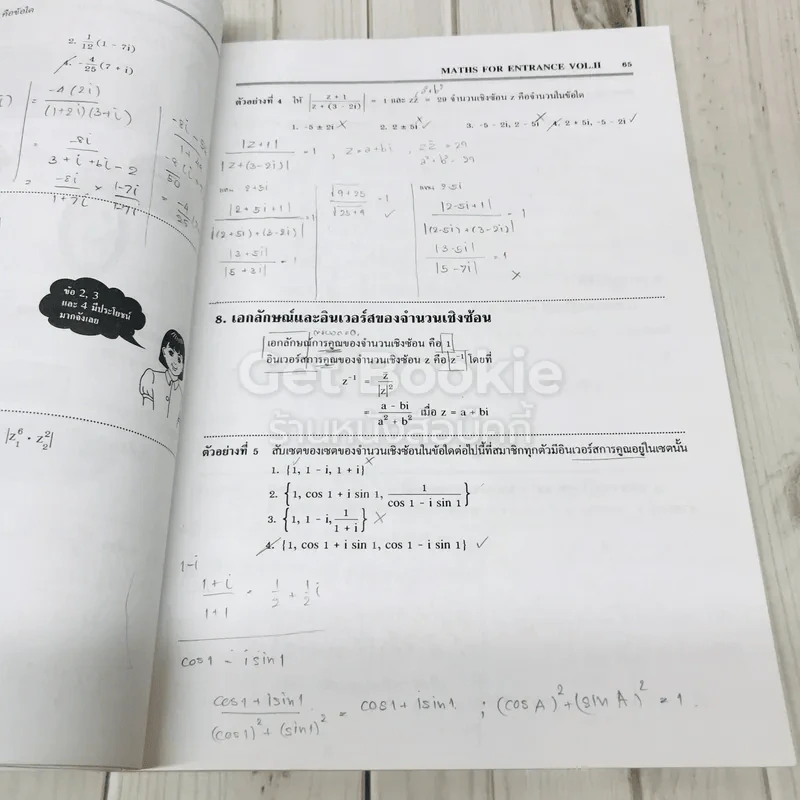 คือข้อใด
2. 1/12 (1 - 7i)
4. -4/25 (7 + i)
= -4(2i) / (1+2i)(3+i)
= -8i / 3 + i + 6i - 2
= -8i / 1+7i × 1-7i / 1-7i
ข้อ 2, 3
และ 4 มีประโยชน์
มากจังเลย
|z₁⁶ · z₂²|
MATHS FOR ENTRANCE VOL.II 65
ตัวอย่างที่ 4 ให้ |z + 1 / z + (3 - 2i)| = 1 และ zz̄ = 29 จำนวนเชิงซ้อน z คือจำนวนในข้อใด
1. -5 ± 2i × 2. 2 ± 5i ✓ 3. -5 - 2i, 2 - 5i × 4. 2 + 5i, -5 - 2i ✓
|z+1| / |z+(3-2i)| = 1 , z = a+bi , zz̄ = 29
a² + b² = 29
แทน 2+5i
|2+5i+1| / |(2+5i)+(3-2i)| = 1
|3+5i| / |5+3i| = 1
√9+25 / √25+9 = 1 ✓
แทน 2-5i
|2-5i+1| / |(2-5i)+(3-2i)| = 1
|3-5i| / |5-7i| = 1
×
8. เอกลักษณ์และอินเวอร์สของจำนวนเชิงซ้อน
เอกลักษณ์การคูณของจำนวนเชิงซ้อน คือ 1
อินเวอร์สการคูณของจำนวนเชิงซ้อน z คือ z⁻¹ โดยที่
z⁻¹ = z̄ / |z|²
= a - bi / a² + b² เมื่อ z = a + bi
Get Bookie
ร้านหนังสือบุ๊คกี้
ตัวอย่างที่ 5 สับเซตของเซตของจำนวนเชิงซ้อนในข้อใดต่อไปนี้ที่สมาชิกทุกตัวมีอินเวอร์สการคูณอยู่ในเซตนั้น
1. {1, 1 - i, 1 + i} ×
2. {1, cos 1 + i sin 1, 1 / cos 1 - i sin 1}
3. {1, 1 - i, 1 / 1 + i} ×
4. {1, cos 1 + i sin 1, cos 1 - i sin 1} ✓
1-i
1+i / 1+1 = 1/2 + 1/2 i
cos1 - isin1
cos1 + isin1 / (cos1)² + (sin1)² = cos1 + isin1 ; (cos A)² + (sin A)² = 1